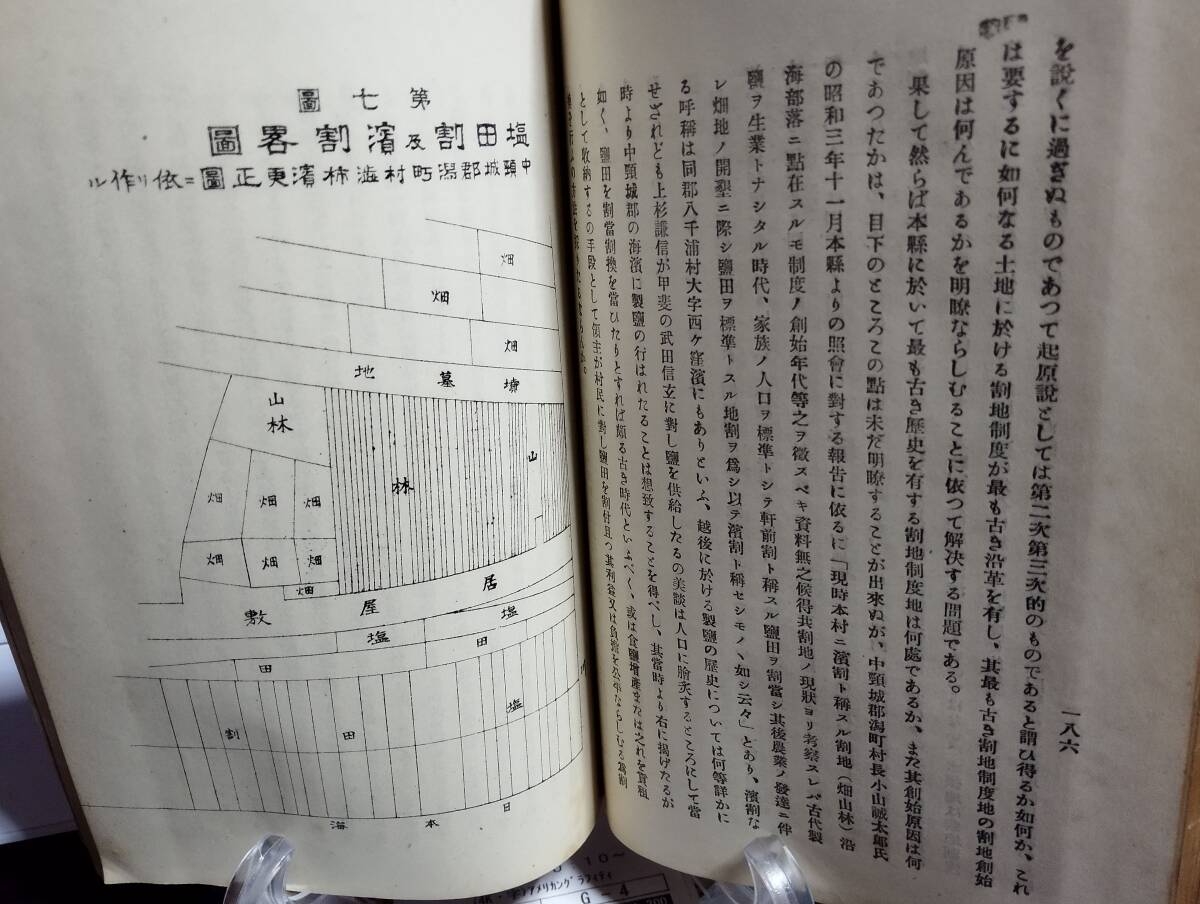 一八六
を説くに過ぎぬものであつて起原説としては第二次第三次的のものであると謂ひ得るか如何か、これ
は要するに如何なる土地に於ける割地制度が最も古き沿革を有し、其最も古き割地制度地の割地創始
原因は何んであるかを明瞭ならしむることに依つて解決する問題である。
果して然らば本縣に於いて最も古き歴史を有する割地制度地は何處であるか、また其創始原因は何
であつたかは、目下のところこの點は未だ明瞭することが出來ぬが、中頸城郡潟町村長小山誠太郎氏
の昭和三年十一月本縣よりの照會に對する報告に依るに「現時本村ニ濱割ト稱スル割地（畑山林）沿
海部落ニ點在スルモ制度ノ創始年代等之ヲ徴スベキ資料無之候得共割地ノ現狀ヨリ考察スレバ古代製
鹽ヲ生業トナシタル時代、家族ノ人口ヲ標準トシテ軒前割ト稱スル鹽田ヲ割當シ其後農業ノ發達ニ伴
レ畑地ノ開墾ニ際シ鹽田ヲ標準トスル地割ヲ爲シ以テ濱割ト稱セシモノヽ如シ云々」とあり、濱割な
る呼稱は同郡八千浦村大字西ケ窪濱にもありといふ、越後に於ける製鹽の歴史については何等詳かに
せざれども上杉謙信が甲斐の武田信玄に對し鹽を供給したるの美談は人口に膾炙するところにして當
時より中頸城郡の海濱に製鹽の行はれたることは想致することを得べし、其當時より右に揭げたるが
如く、鹽田を割當割換を當ひたりとすれば頗る古き時代といふべく、或は食鹽增產または之れを貢租
として收納するの手段として領主が村民に對し鹽田を割付且つ其利益又は負擔を公平ならしむる爲割
第七圖
塩田割及濱割畧圖
中頸城郡潟町村澁柿濱更正圖ニ依リ作ル
畑
畑
畑
墳墓地
山林
山林
畑 畑 畑
畑 畑 畑
畑
居屋敷
塩田
塩田
塩田割
日本海
10～
アメリカングラフィティ
G－4